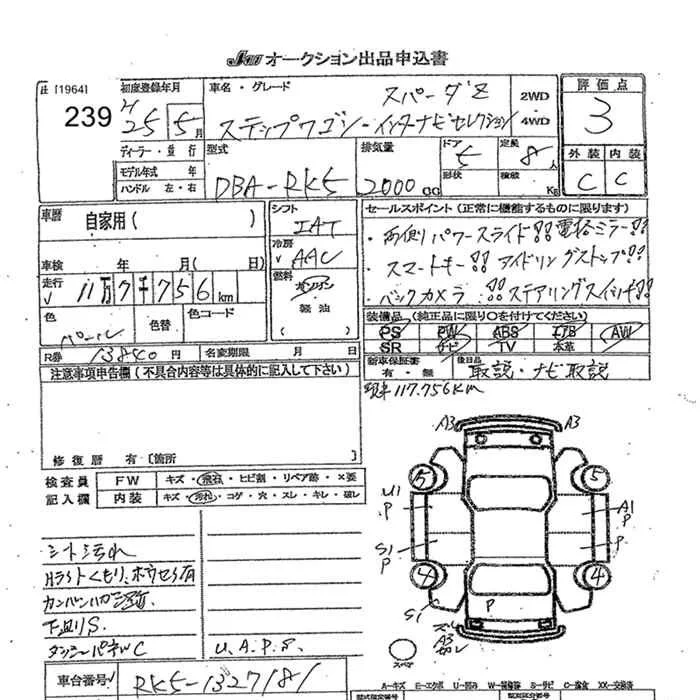 JAA オークション出品申込書
荘 [1964]
239
初度登録年月
H 25 5月
車名・グレード
スパーダZ
ステップワゴン・インターナビセレクション
2WD・4WD
評価点
3
外装 内装
C C
ディーラー・並行
モデル年式 年
ハンドル 左・右
型式
DBA-RK5
排気量
2000cc
ドア 5
形状
定員 8人
積載 Kg
車歴 自家用( )
シフト
IAT
冷房
AAC
燃料
ガソリン・軽油
車検 年 月( 日)
走行 11万7千756km
色 パール
色替
色コード
R券 13840円 名変期限 月 日
セールスポイント (正常に機能するものに限ります)
・両側パワースライド!! 電格ミラー!!
・スマートキー!! アイドリングストップ!!
・バックカメラ!! ステアリングスイッチ!!
装備品 (純正品に限り○を付けてください)
PS PW ABS エアB AW
SR ナビ TV 本革
新車保証書 有・無
後日品 取説・ナビ取説
現車117.756km
注意事項申告欄 (不具合内容等は具体的に記入して下さい)
修復歴 有 [箇所
検査員記入欄
FW キズ・飛石・ヒビ割・リペア跡・×要
内装 キズ・汚れ・コゲ・穴・スレ・キレ・破レ
シート汚れ
下廻りS.
U.A.P.S.
車台番号 RK5-1327181
A3 A3
5 5
U1 P
A1 P
S1 P
P
4 4
S1
P
A3
スペア
A-キズ E-エクボ U-凹み W-補修跡 S-サビ C-腐食 XX-交換済